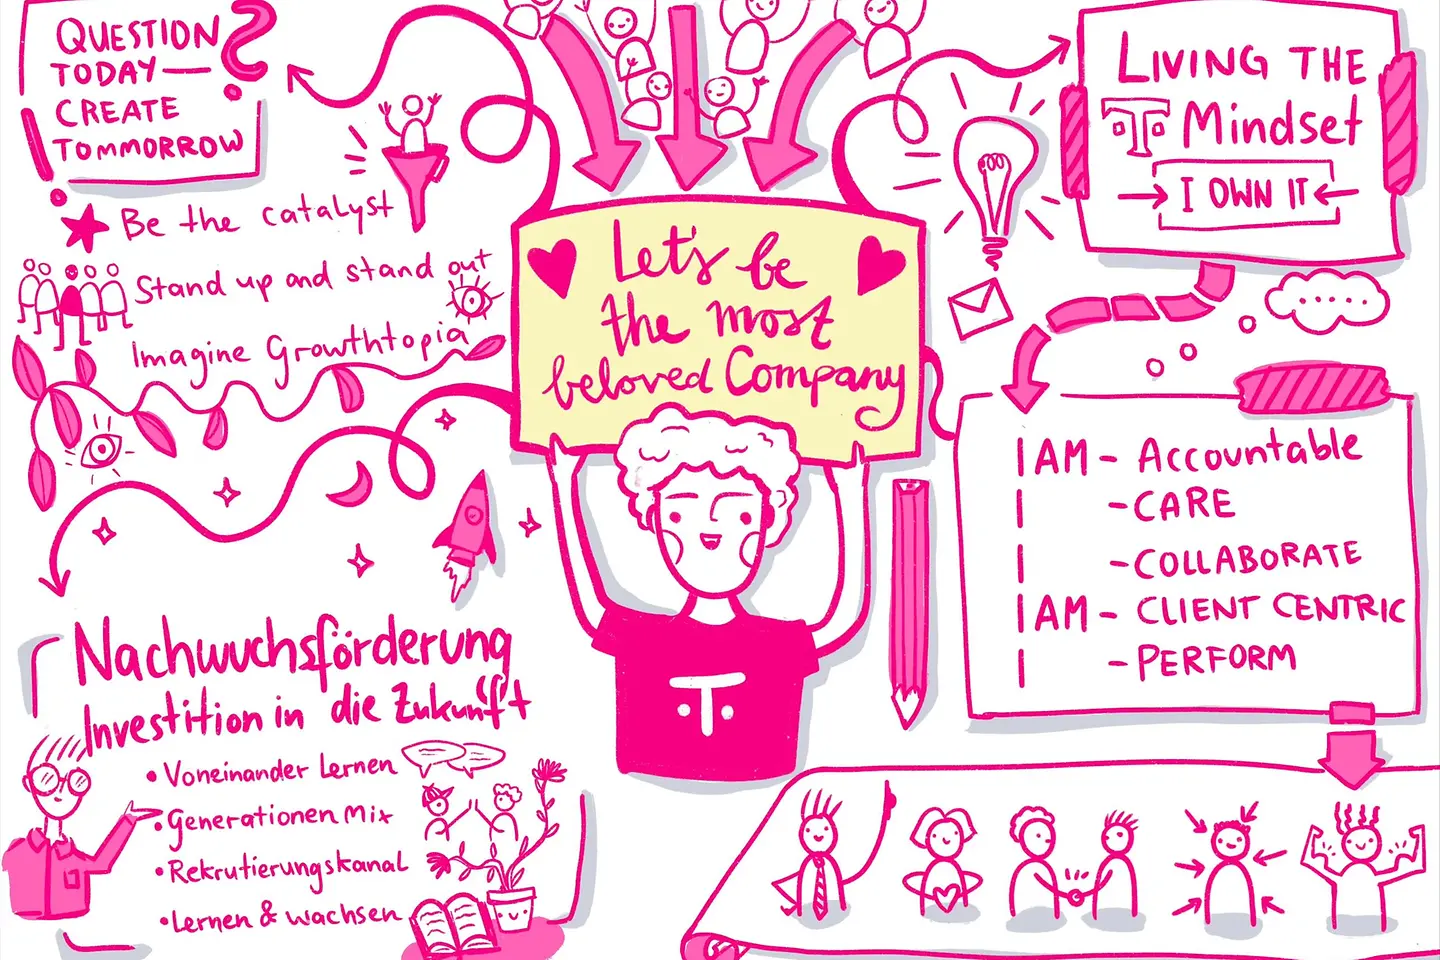 QUESTION
TODAY—
CREATE
TOMMORROW
?
Be the catalyst
Stand up and stand out
Imagine Growthtopia
Let's be
the most
beloved Company
LIVING THE
T Mindset
I OWN IT
I AM - Accountable
I - CARE
I - COLLABORATE
I AM - CLIENT CENTRIC
I - PERFORM
T
Nachwuchsförderung
Investition in die Zukunft
• Voneinander Lernen
• Generationen Mix
• Rekrutierungskanal
• Lernen & wachsen